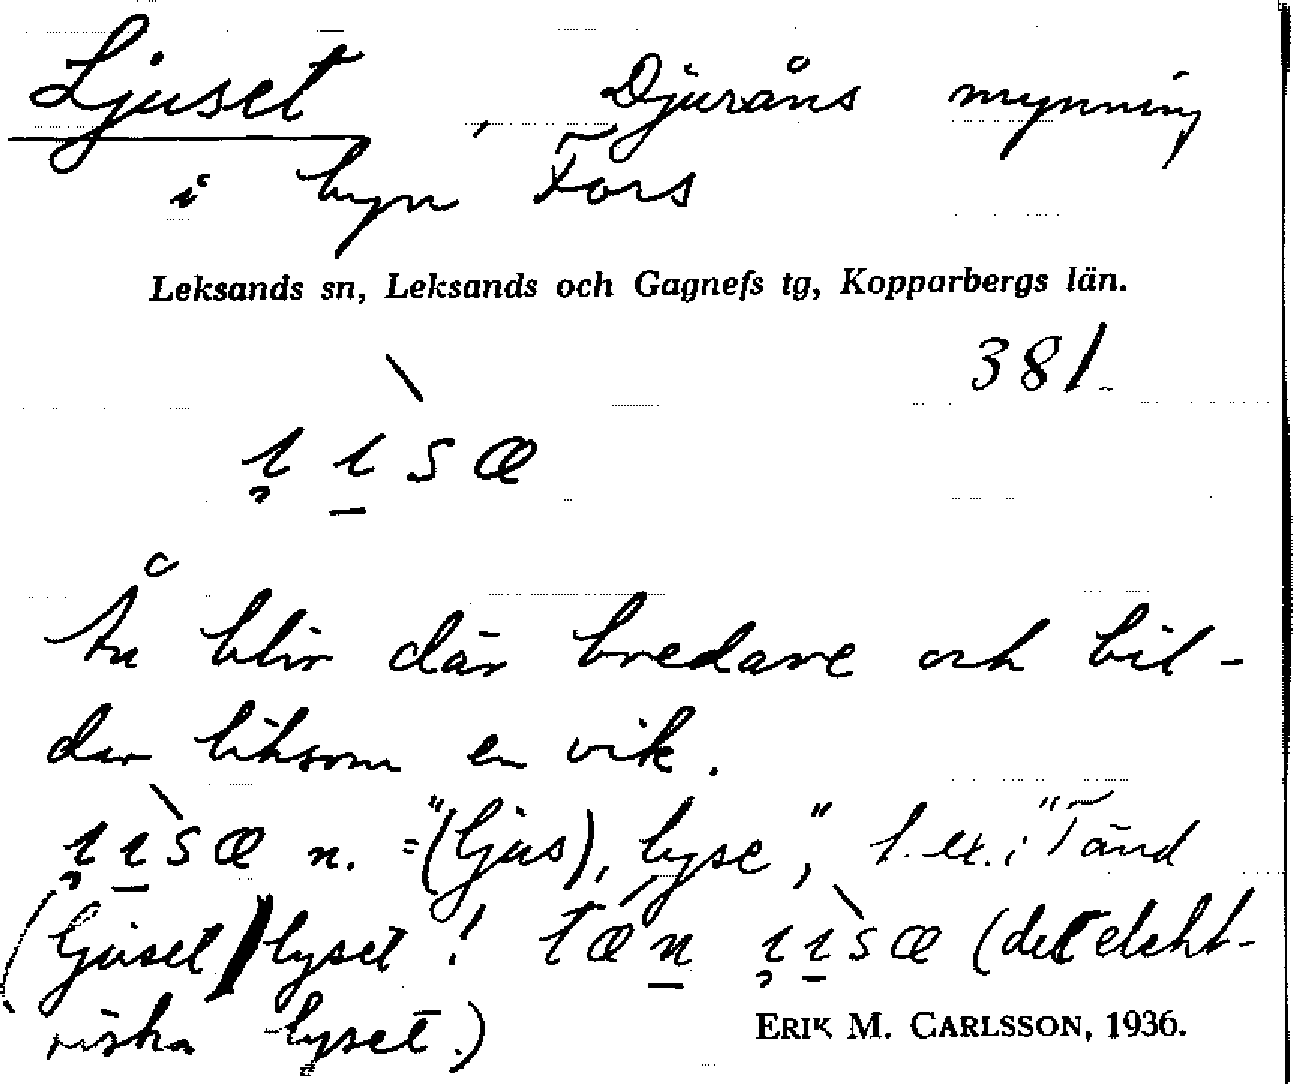 Ljuset, Djuråns mynning
i byn Fors
Leksands sn, Leksands och Gagnefs tg, Kopparbergs län.
381
ı̣ ı̲̀ s æ
Ån blir där bredare och bil-
dar liksom en vik.
n. = "(ljus), lyse", t. ex. i "Tänd
(ljuset) lyset! (det elekt-
riska lyset.)
ERIK M. CARLSSON, 1936.